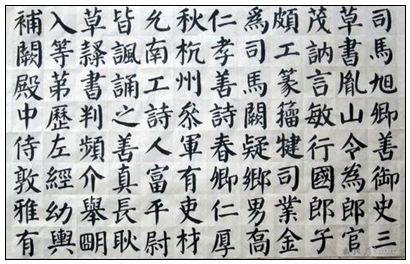 司馬旭卿善御史三
草書胤山令為郎官
茂訥言敏行國郎子
頗工篆籀犍司業金
爲司馬闕疑鄉男高
仁孝善詩春卿仁厚
秋杭州參軍有吏材
允南工詩人富平尉
皆諷誦之善真長耿
草隸書判頻介舉明
入等第歷左經幼輿
補闕殿中侍敦雅有